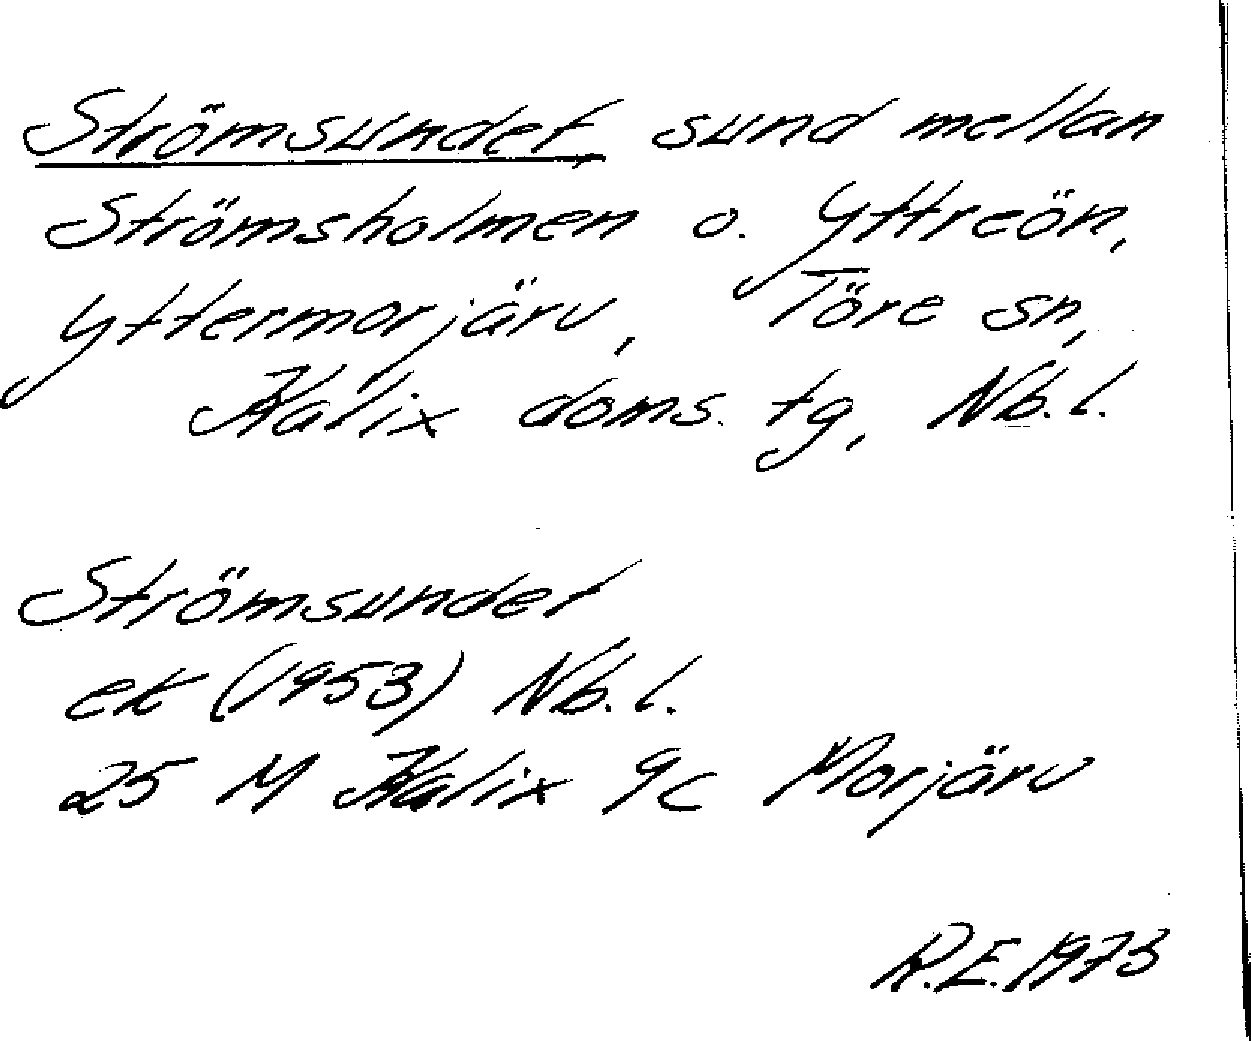 Strömsundet, sund mellan
Strömsholmen o. Yttreön,
Yttermorjärv, Töre sn,
Kalix doms. tg, Nb. l.
Strömsundet
ek (1953) Nb. l.
25 M Kalix 9c Morjärv
R.E. 1973